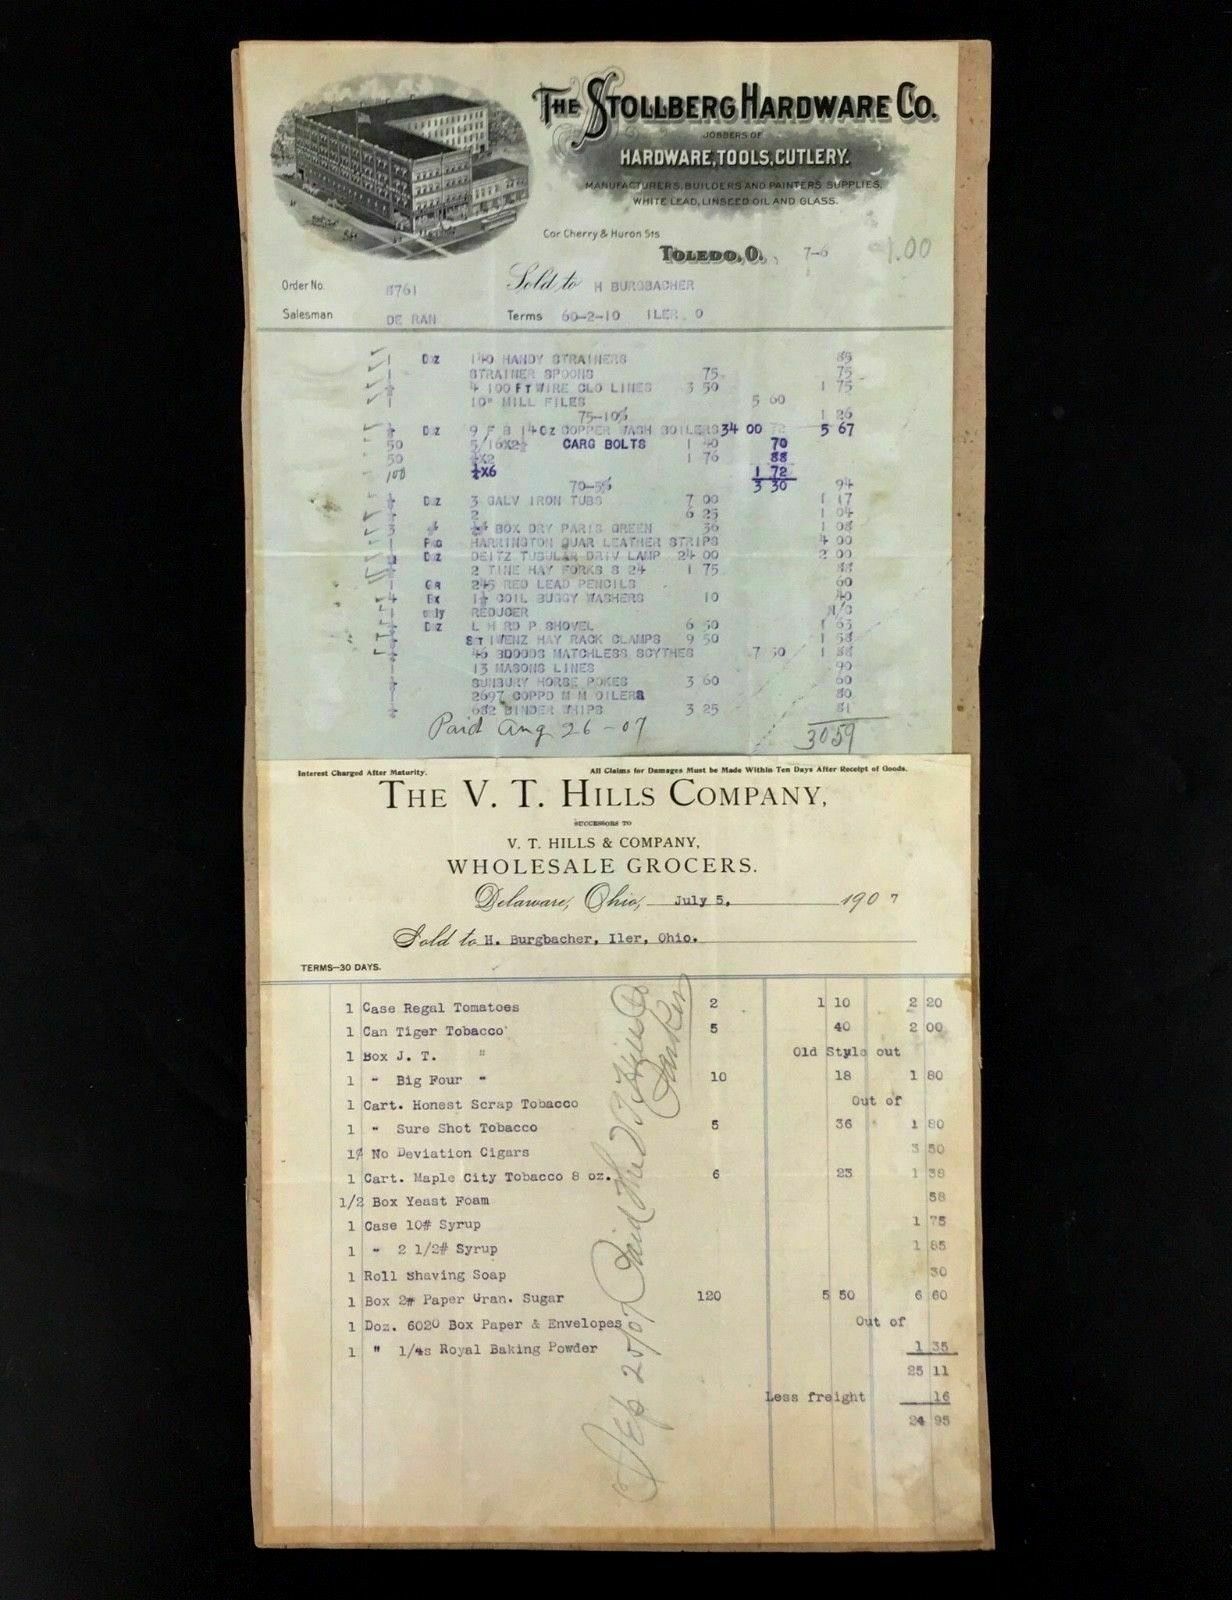 THE STOLLBERG HARDWARE CO.
JOBBERS OF
HARDWARE, TOOLS, CUTLERY.
MANUFACTURERS, BUILDERS AND PAINTERS SUPPLIES,
WHITE LEAD, LINSEED OIL AND GLASS.
Cor Cherry & Huron Sts
TOLEDO, O. 7-6 1.00
Order No. 8761 Sold to H BURGBACHER
Salesman DE RAN Terms 60-2-10 ILER. O
1 Doz 140 HANDY STRAINERS 85
1 STRAINER SPOONS 75 75
4 100 FT WIRE CLO LINES 3 50 1 75
1 10" MILL FILES 5 60
75-10% 1 26
Doz 9 F B 14 Oz COPPER WASH BOILERS 34 00 72 5 67
50 5/16X2½ CARG BOLTS 1 40 70
50 X2 1 76 88
100 X6 1 72
70-5% 3 30 94
Doz 3 GALV IRON TUBS 7 00 1 17
2 6 25 1 04
3 BOX DRY PARIS GREEN 36 1 08
1 PKG HARRINGTON QUAR LEATHER STRIPS 4 00
Doz DEITZ TUBULAR DRIV LAMP 24 00 2 00
2 TINE HAY FORKS S 24 1 75 88
1 GR 245 RED LEAD PENCILS 60
4 BX COIL BUGGY WASHERS 10 40
1 only REDUCER N/C
Doz L H RD P SHOVEL 6 50 1 63
HAY RACK CLAMPS 9 50 1 58
46 MATCHLESS SCYTHES 7 50 1 88
13 MASONS LINES 90
SUNBURY HORSE POKES 3 60 60
2697 COPPD M M OILERS 80
682 BINDER WHIPS 3 25 81
Paid Aug 26-07 3059
Interest Charged After Maturity. All Claims for Damages Must be Made Within Ten Days After Receipt of Goods.
THE V. T. HILLS COMPANY,
SUCCESSORS TO
V. T. HILLS & COMPANY,
WHOLESALE GROCERS.
Delaware, Ohio, July 5, 1907
Sold to H. Burgbacher, Iler, Ohio.
TERMS—30 DAYS.
1 Case Regal Tomatoes 2 1 10 2 20
1 Can Tiger Tobacco 5 40 2 00
1 Box J. T. " Old Style out
1 " Big Four " 10 18 1 80
1 Cart. Honest Scrap Tobacco Out of
1 " Sure Shot Tobacco 5 36 1 80
No Deviation Cigars 3 50
1 Cart. Maple City Tobacco 8 oz. 6 23 1 38
1/2 Box Yeast Foam 58
1 Case 10# Syrup 1 75
1 " 2 1/2# Syrup 1 85
1 Roll Shaving Soap 30
1 Box 2# Paper Gran. Sugar 120 5 50 6 60
1 Doz. 6020 Box Paper & Envelopes Out of
1 " 1/4s Royal Baking Powder 1 35
25 11
Less freight 16
24 95
Sep 25/07 Paid The V T Hills Co